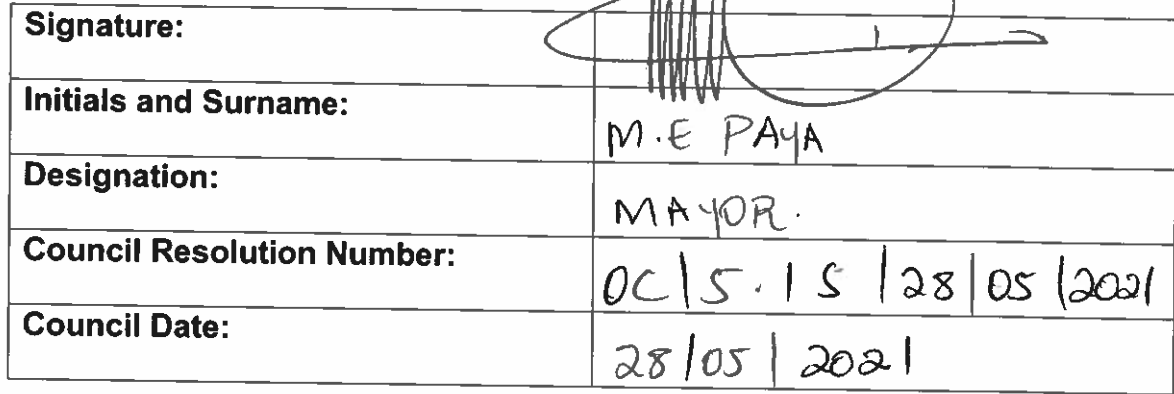 Signature:
Initials and Surname: M.E PAYA
Designation: MAYOR.
Council Resolution Number: OC|5.15|28|05|2021
Council Date: 28|05|2021